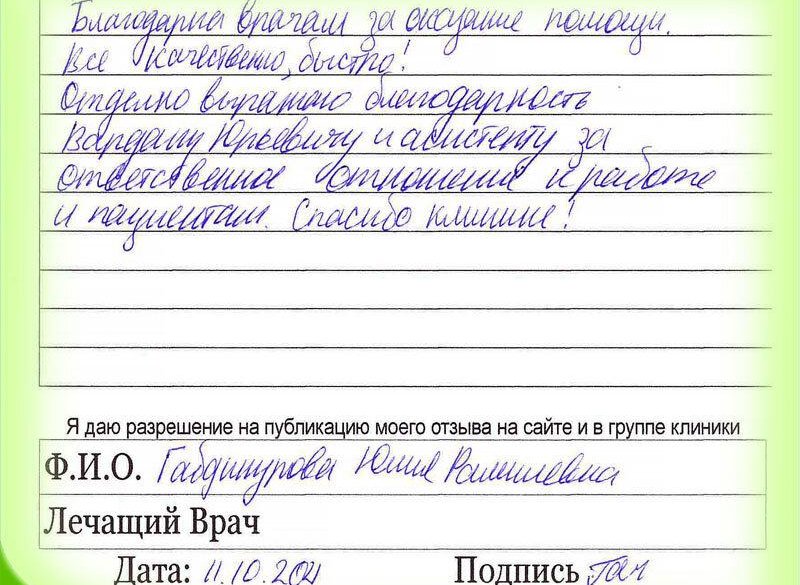 Благодарна врачам за оказание помощи.
Все качественно, быстро!
Отделно выражаю благодарность
Вардану Юрьевичу и асистенту за
ответственное отношение к работе
и пациентам. Спасибо клинике!
Я даю разрешение на публикацию моего отзыва на сайте и в группе клиники
Ф.И.О. Юлия Рамилевна
Лечащий Врач
Дата: 11.10.2021 Подпись